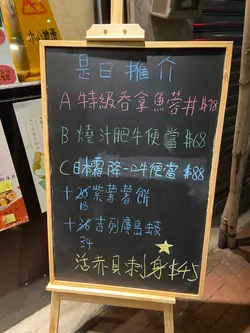 是日推介
A 特級吞拿魚蓉丼 $78
B 燒汁肥牛便當 $68
C 日本霜降一口牛便當 $88
+28 紫薯薯餅
18
+36 吉列廣島蠔
34
活赤貝刺身 $45